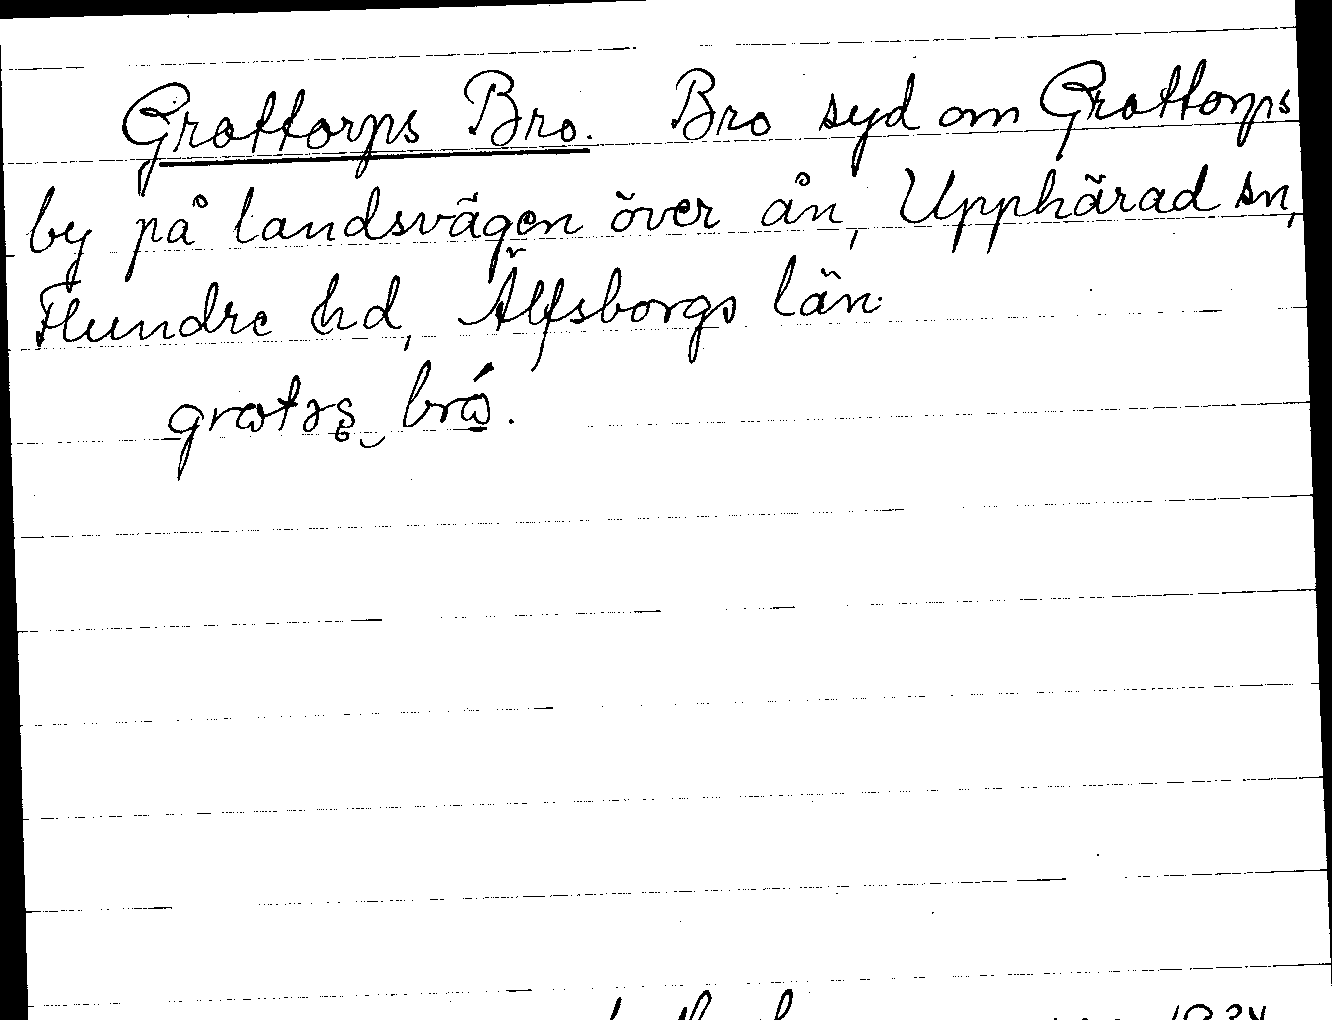 Grottorps Bro. Bro syd om Grottorps
by på landsvägen över ån, Upphärad sn,
Flundre hd, Älfsborgs län.